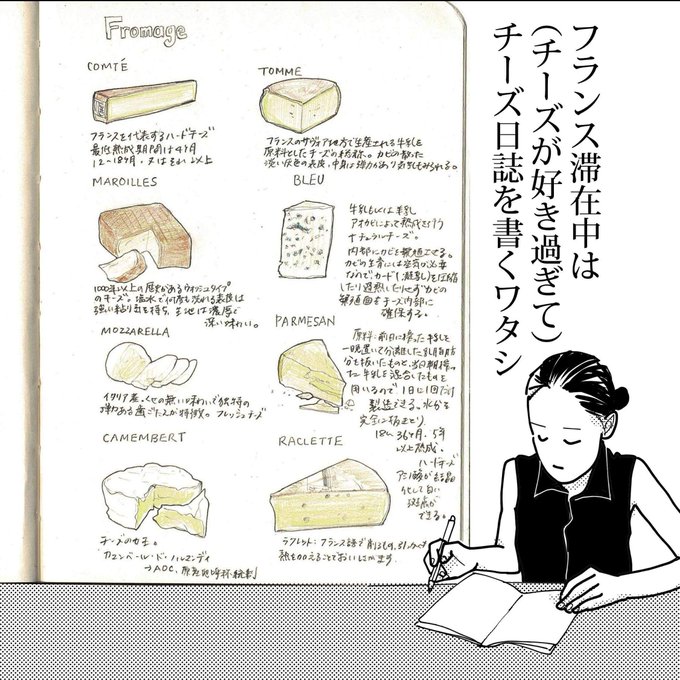 フランス滞在中は
（チーズが好き過ぎて）
チーズ日誌を書くワタシ
Fromage
COMTÉ
フランスを代表するハードチーズ
最低熟成期間は4ヶ月
12〜18ヶ月、又はそれ以上
TOMME
フランスのサヴォア地方で生産される牛乳を
原料としたチーズの総称。カビの散った
淡い灰色の表皮、中身は弾力があり気孔もみられる。
MAROILLES
1000年以上の歴史があるウォッシュタイプ
のチーズ。塩水で何度も洗われる表皮は
強い粘り気を持ち、生地は濃厚で
深い味わい。
BLEU
牛乳もしくは羊乳
アオカビによって熟成を行う
ナチュラルチーズ。
内部にカビを繁殖させる。
カビの生育には空気が必要
なのでカード(凝乳)を圧縮
したり過熱したりせずカビの
繁殖面をチーズ内部に
確保する。
MOZZARELLA
イタリア産。くせの無い味わいで独特の
弾力ある歯ごたえが特徴。フレッシュチーズ
PARMESAN
原料：前日に搾った牛乳を
一晩置いて分離した乳脂肪
分を抜いたものと、当日朝搾っ
た牛乳を混合したものを
用いるので1日に1回だけ
製造できる。水分を
完全に抜きとり
18ヶ、36ヶ月、5年
以上熟成。
ハードチーズ
アミノ酸が結晶
化して白い
斑点が
できる。
CAMEMBERT
チーズの女王。
カマンベール・ド・ノルマンディ
→AOC、原産地呼称統制
RACLETTE
ラクレット：フランス語で削るもの、
熱を加えることでおいしくなります。